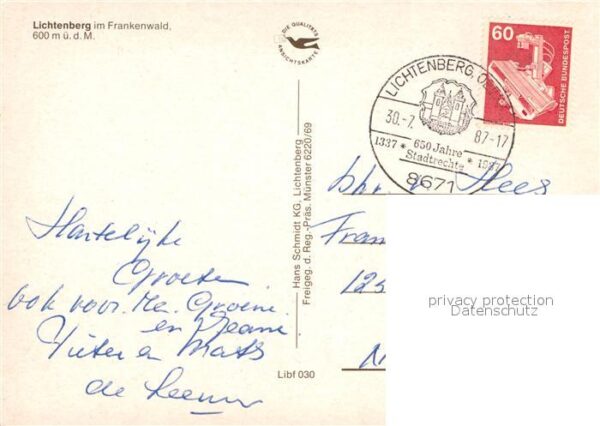 Lichtenberg im Frankenwald,
600 m ü. d. M.
DIE QUALITÄTS
ANSICHTSKARTE
60
DEUTSCHE BUNDESPOST
LICHTENBERG, O
30.-7. 87-17
1337 * 650 Jahre Stadtrechte * 1987
8671
Hans Schmidt KG. Lichtenberg
Freigeg. d. Reg.-Präs. Münster 6220/69
Libf 030
Hartelijke
Groeten
ook voor
en
Pieter en Mats
de Leeuw
Hees
Fran
125
privacy protection
Datenschutz